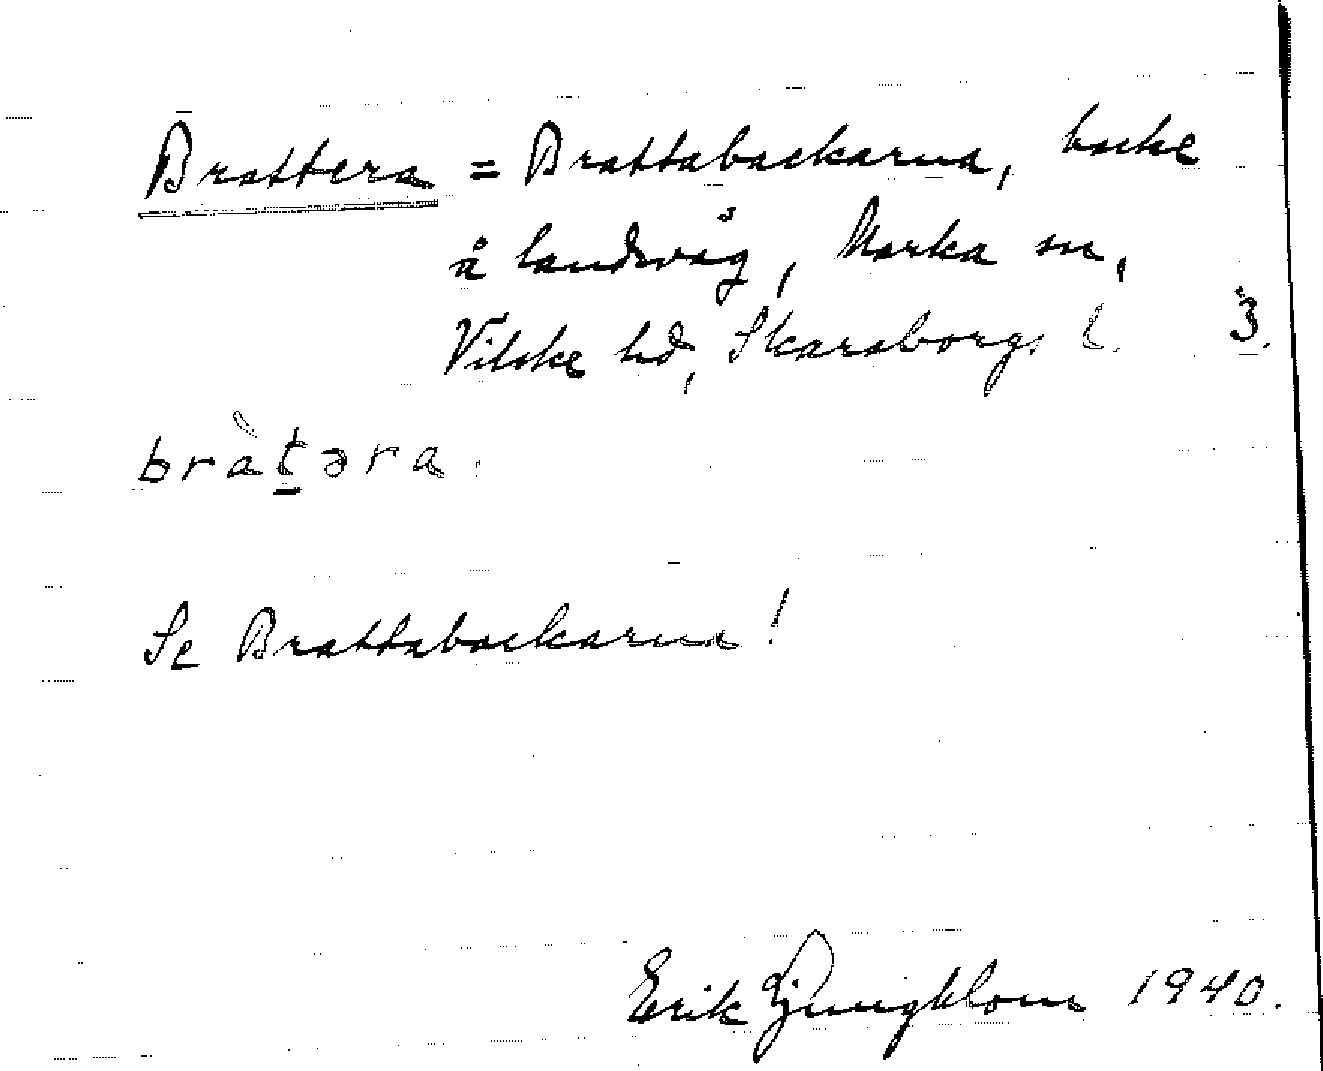 Brattera = Brattabackarna, backe
å landsväg, Marka sn,
Vilske hd, Skaraborgs l. 3.
bràt̠əra.
Se Brattabackarna!
Erik Ljungblom 1940.